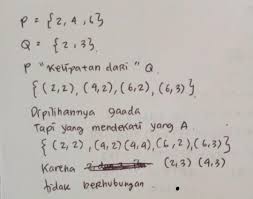 P = {2, 4, 6}
Q = {2, 3}
P "Kelipatan dari" Q
{(2,2), (4,2), (6,2), (6,3)}
Dipilihannya gaada
Tapi yang mendekati yang A
{(2,2), (4,2) (4,4), (6,2), (6,3)}
Karena (2,3) (4,3)
tidak berhubungan